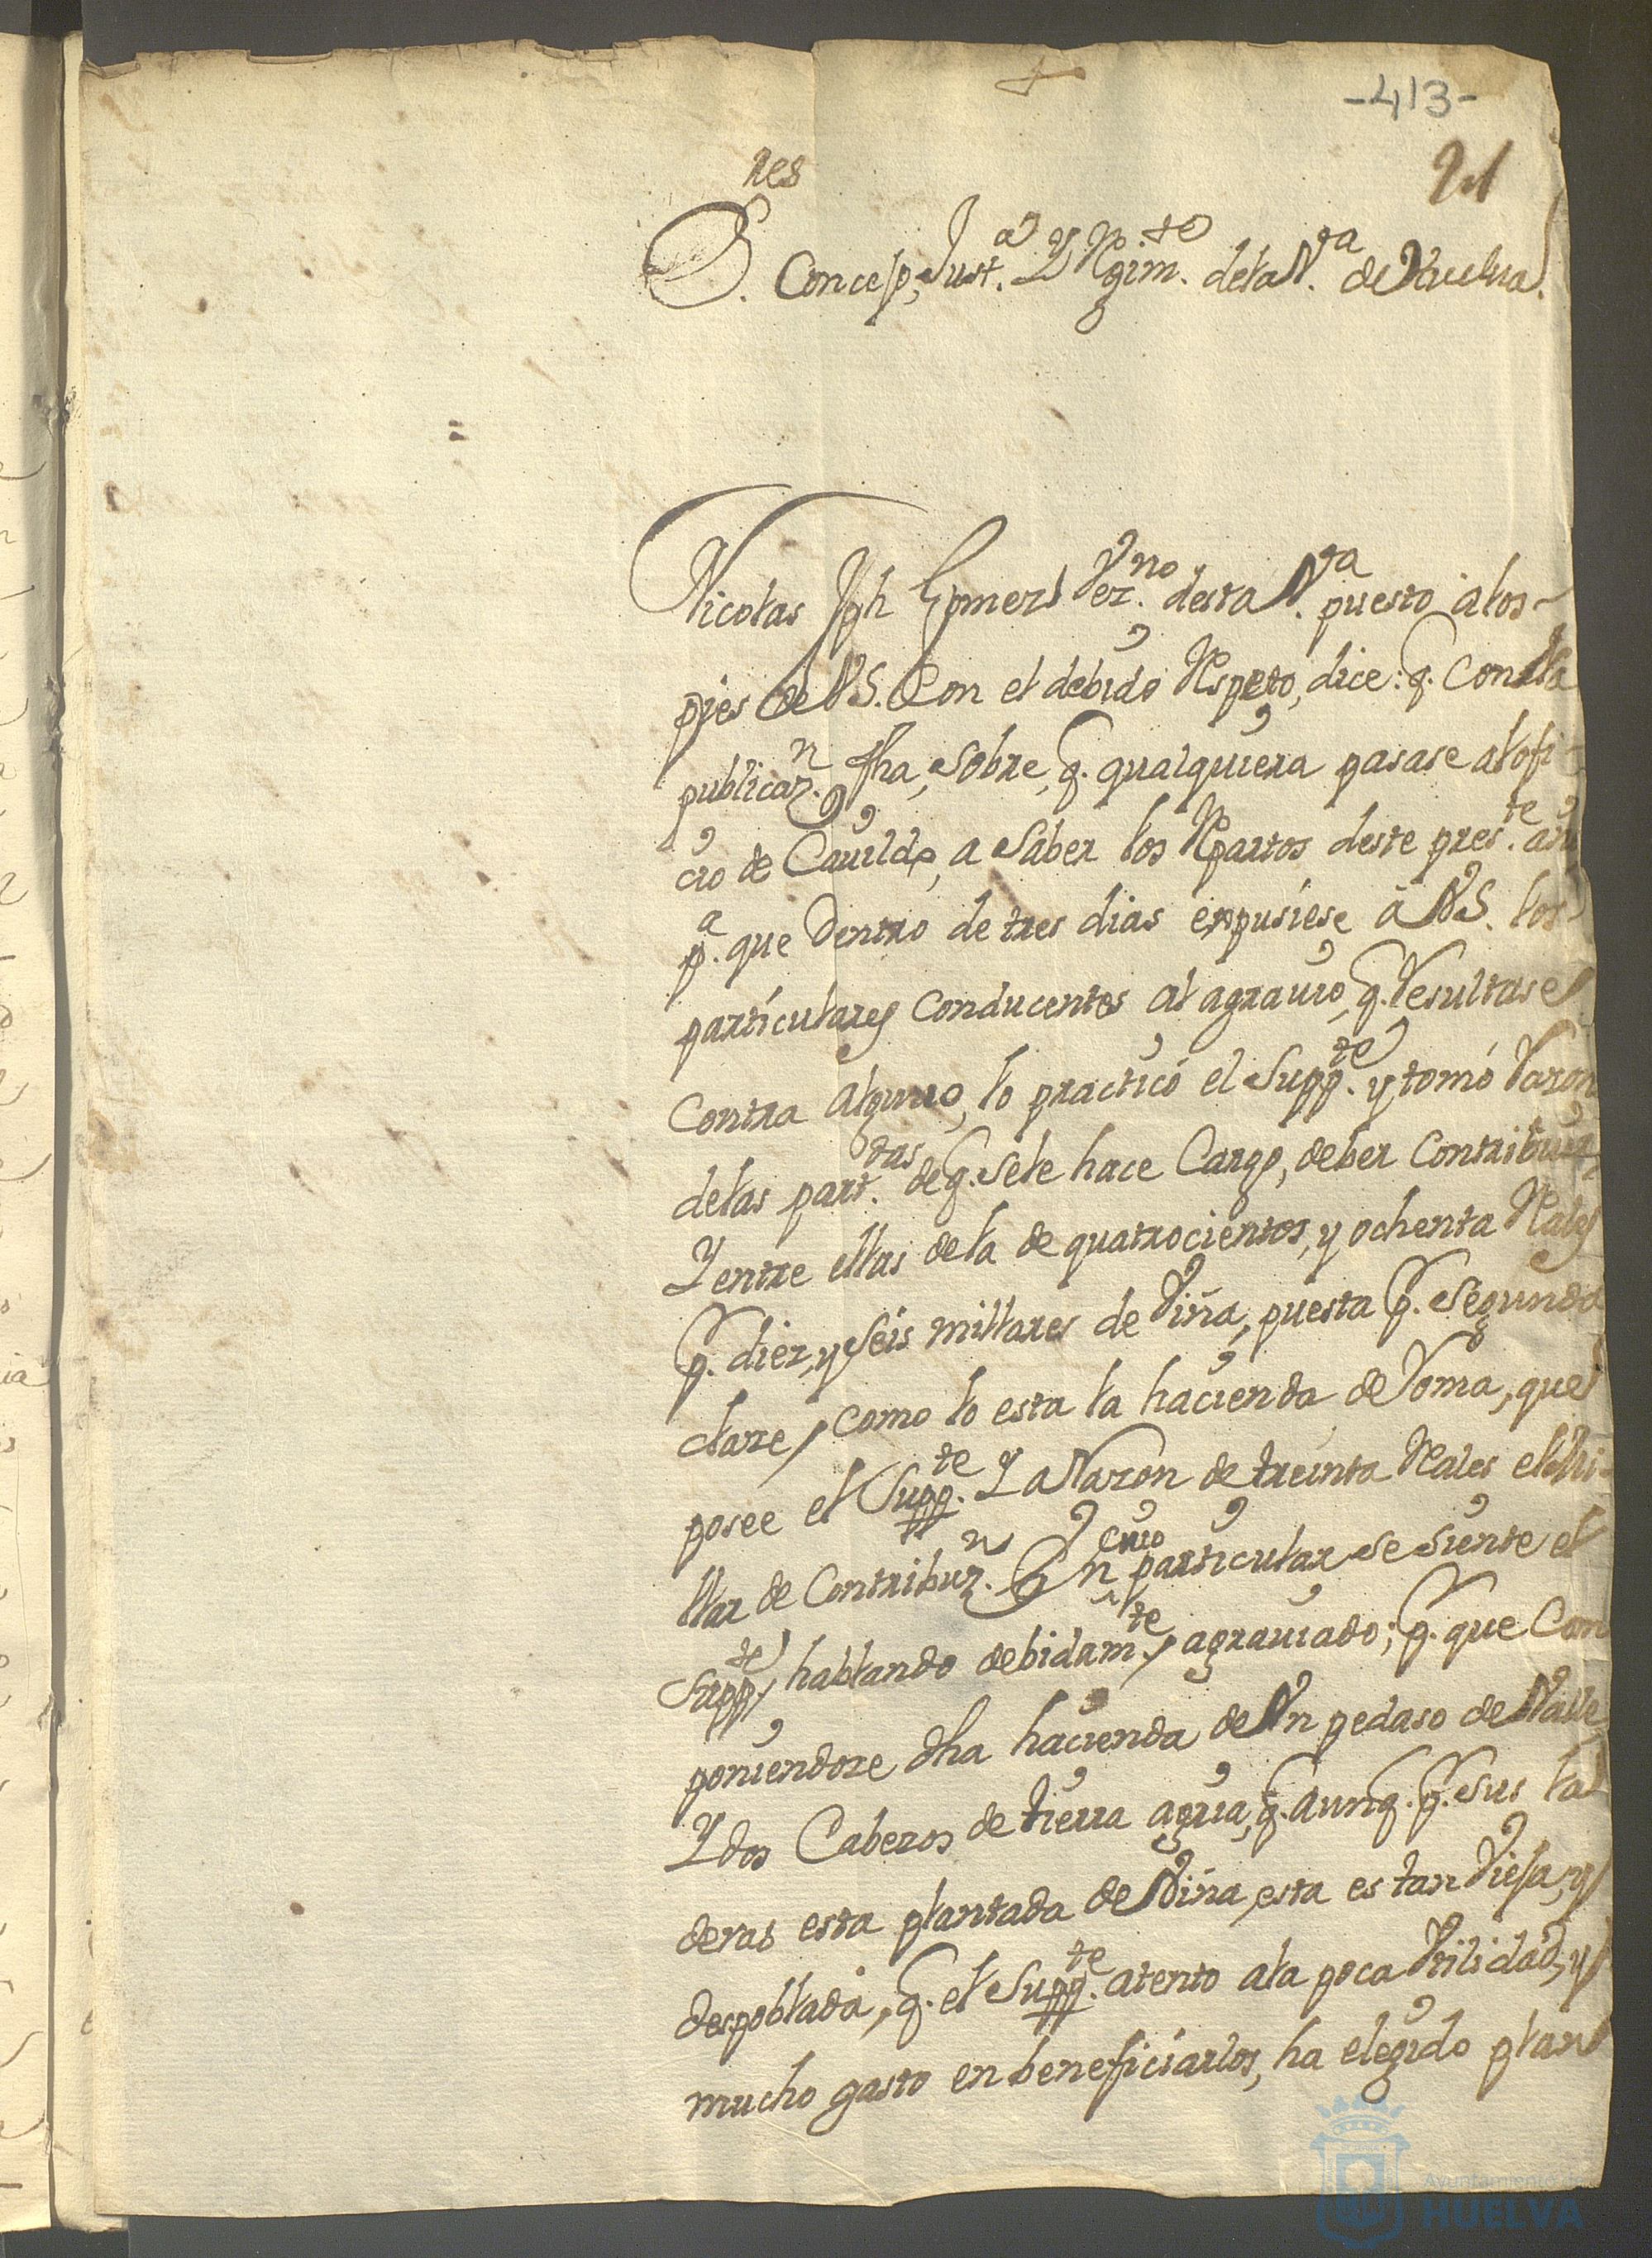 -413-
21
S.res Concejo, Just.a Y Regim.to de la V.a de Huelva.
Nicolas Jph Gomez Vez.no desta V.a puesto a los
pies de V.S. Con el debido Respeto, dice: q. Con la
publicaz.n fha, sobre, q. qualquiera pasase al ofi-
cio de Cauildo, a saber los Repartos deste pres.te año
p.a que dentro de tres dias expusiese á V.S. los
particulares Conducentes al agrauio, q. resultase
Contra alguno, lo practicó el Supp.te y tomó razon
de las part.das de q. se le hace Cargo, deber Contribuir,
Y entre ellas de la de quatrocientos, y ochenta Reales
p. diez, y seis millares de Viña, puesta p. segunda
claze, como lo esta la hacienda de Roma, que
posée el Supp.te Y a Razon de treinta Reales el Mi-
llar de Contribuz.n En cuio particular se siente el
Supp.te, hablando debidam.te, agrauiado; p. que Com
poniendoze dha hacienda de Vn pedaso de Valle
Y dos Cabezos de tierra agria, q. aunq. p. sus la
deras esta plantada de Viña, esta es tan Vieja, y
despoblada, q. el Supp.te atento a la poca Vtilidad, y
mucho gasto en beneficiarlos, ha elegido plan
Ayuntamiento de
HUELVA